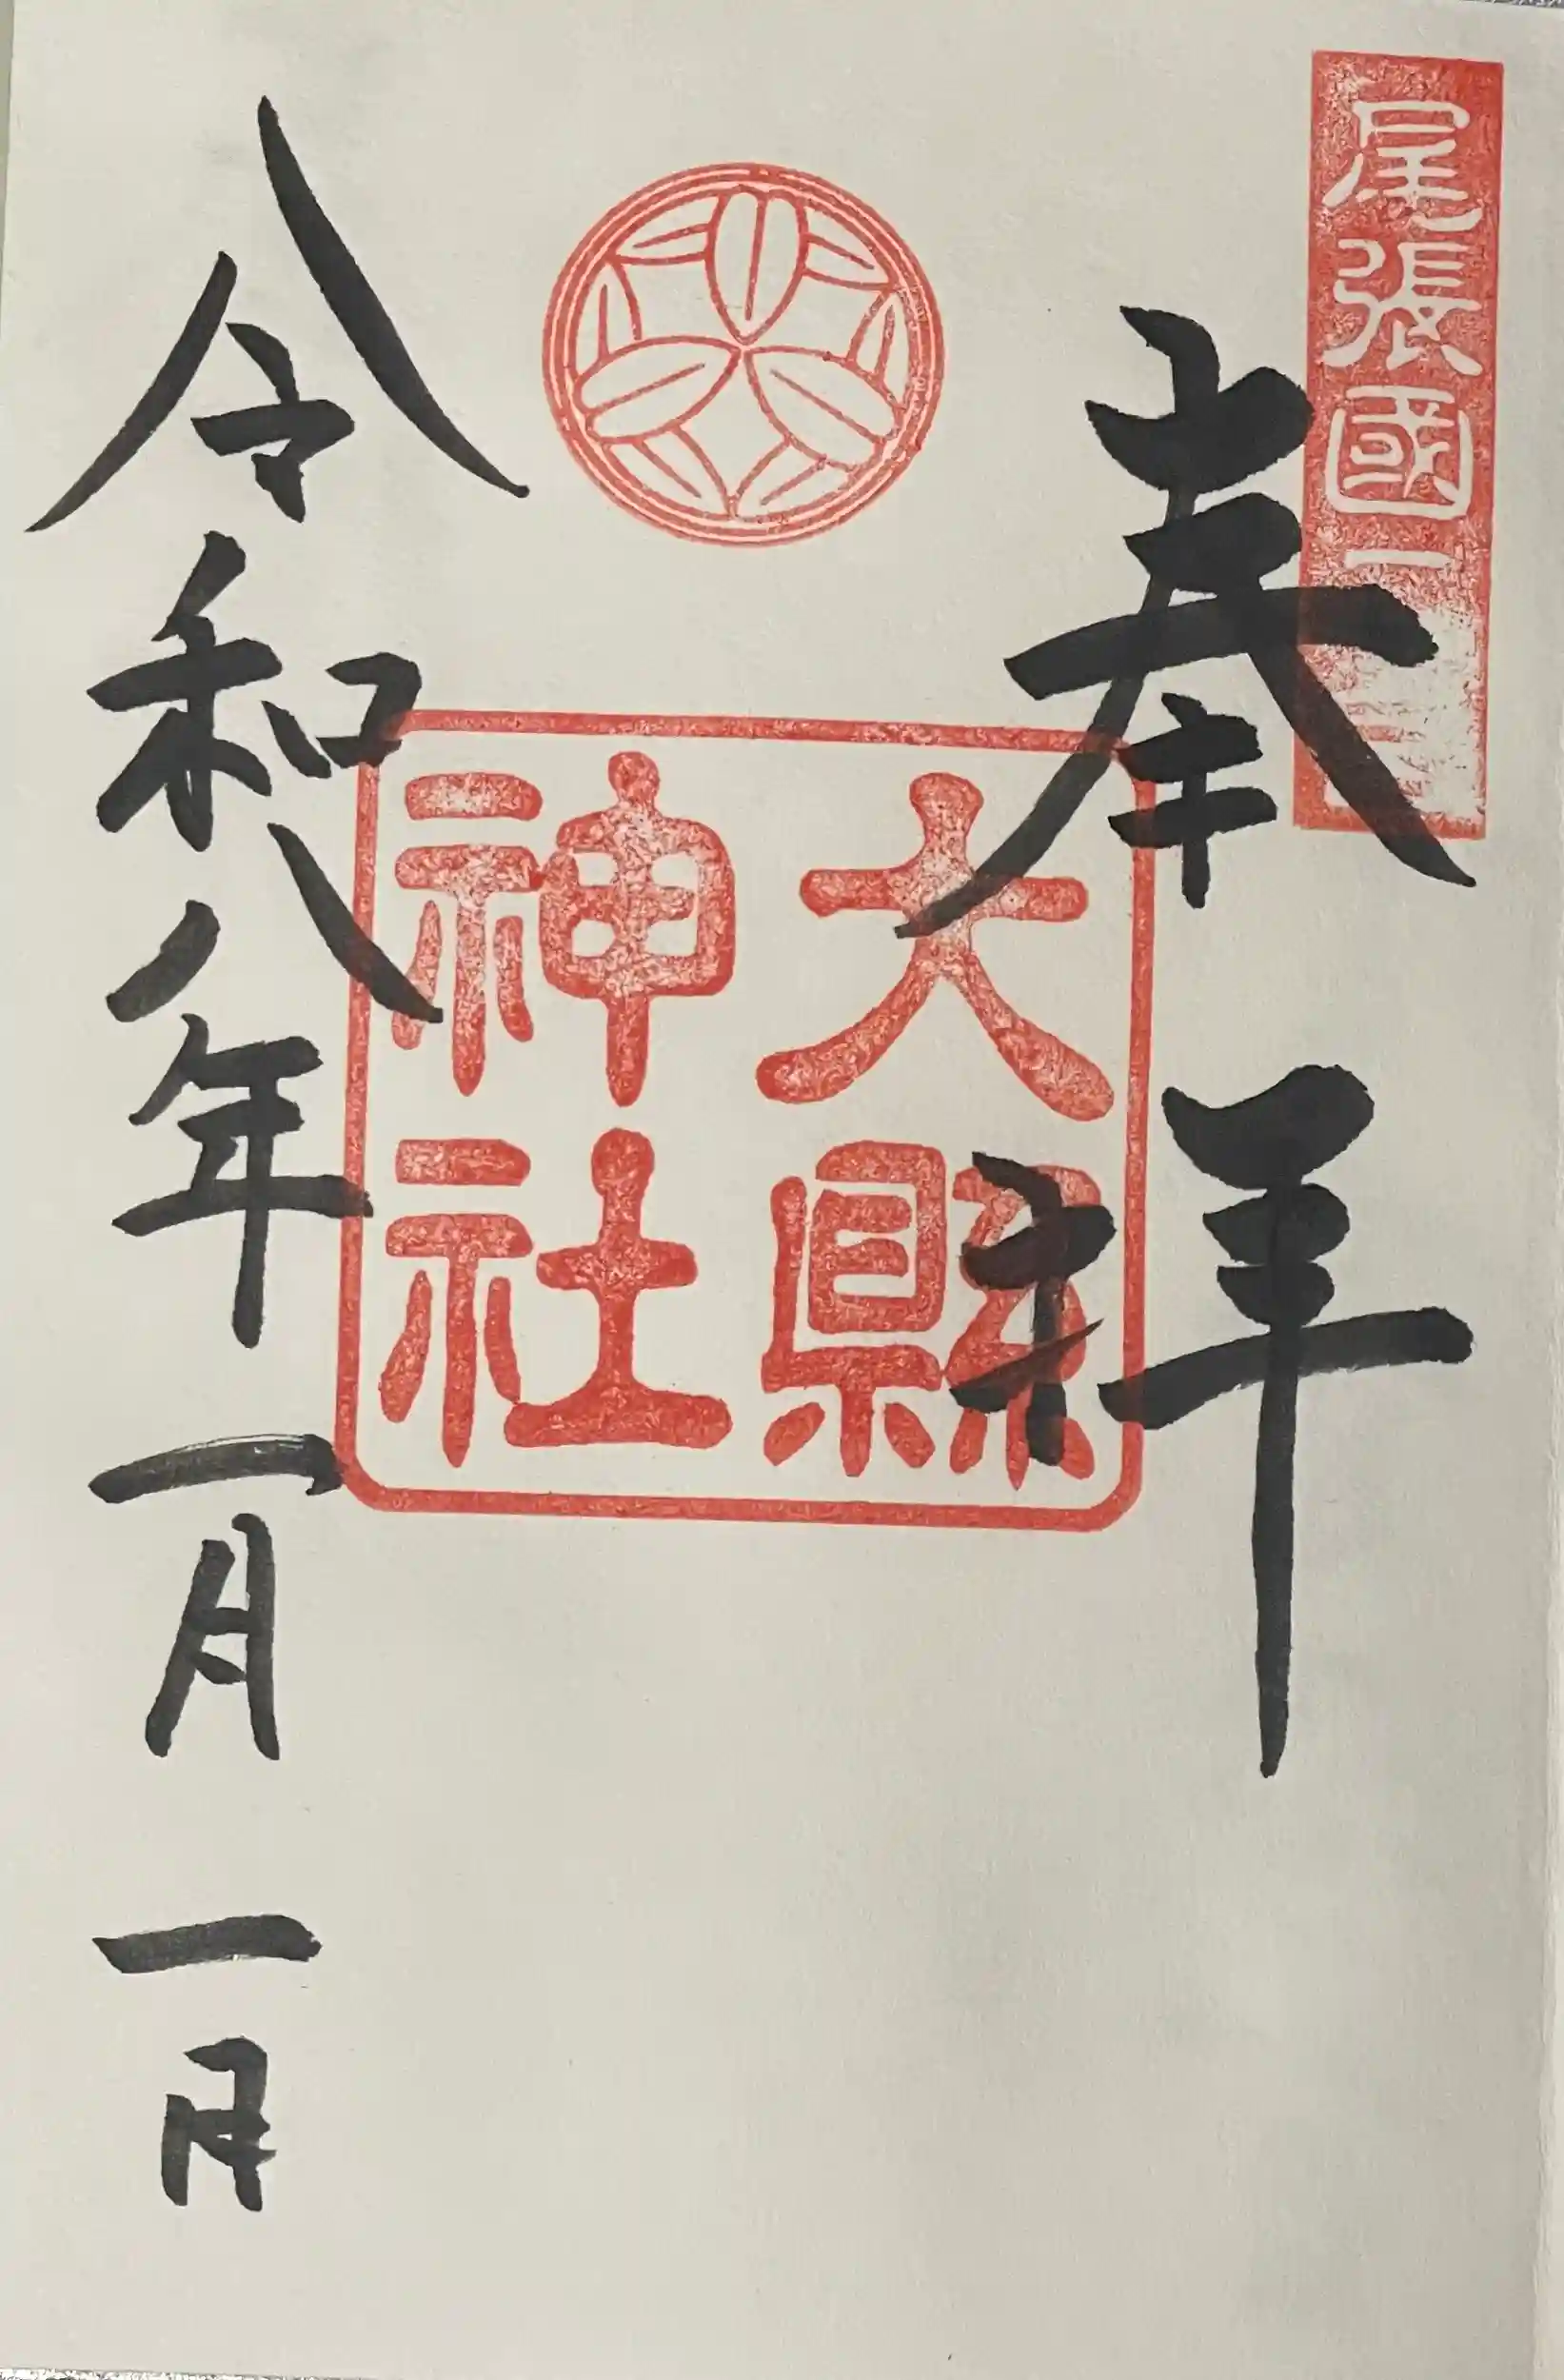 尾張國二
奉拝
大縣
神社
令和八年一月一日